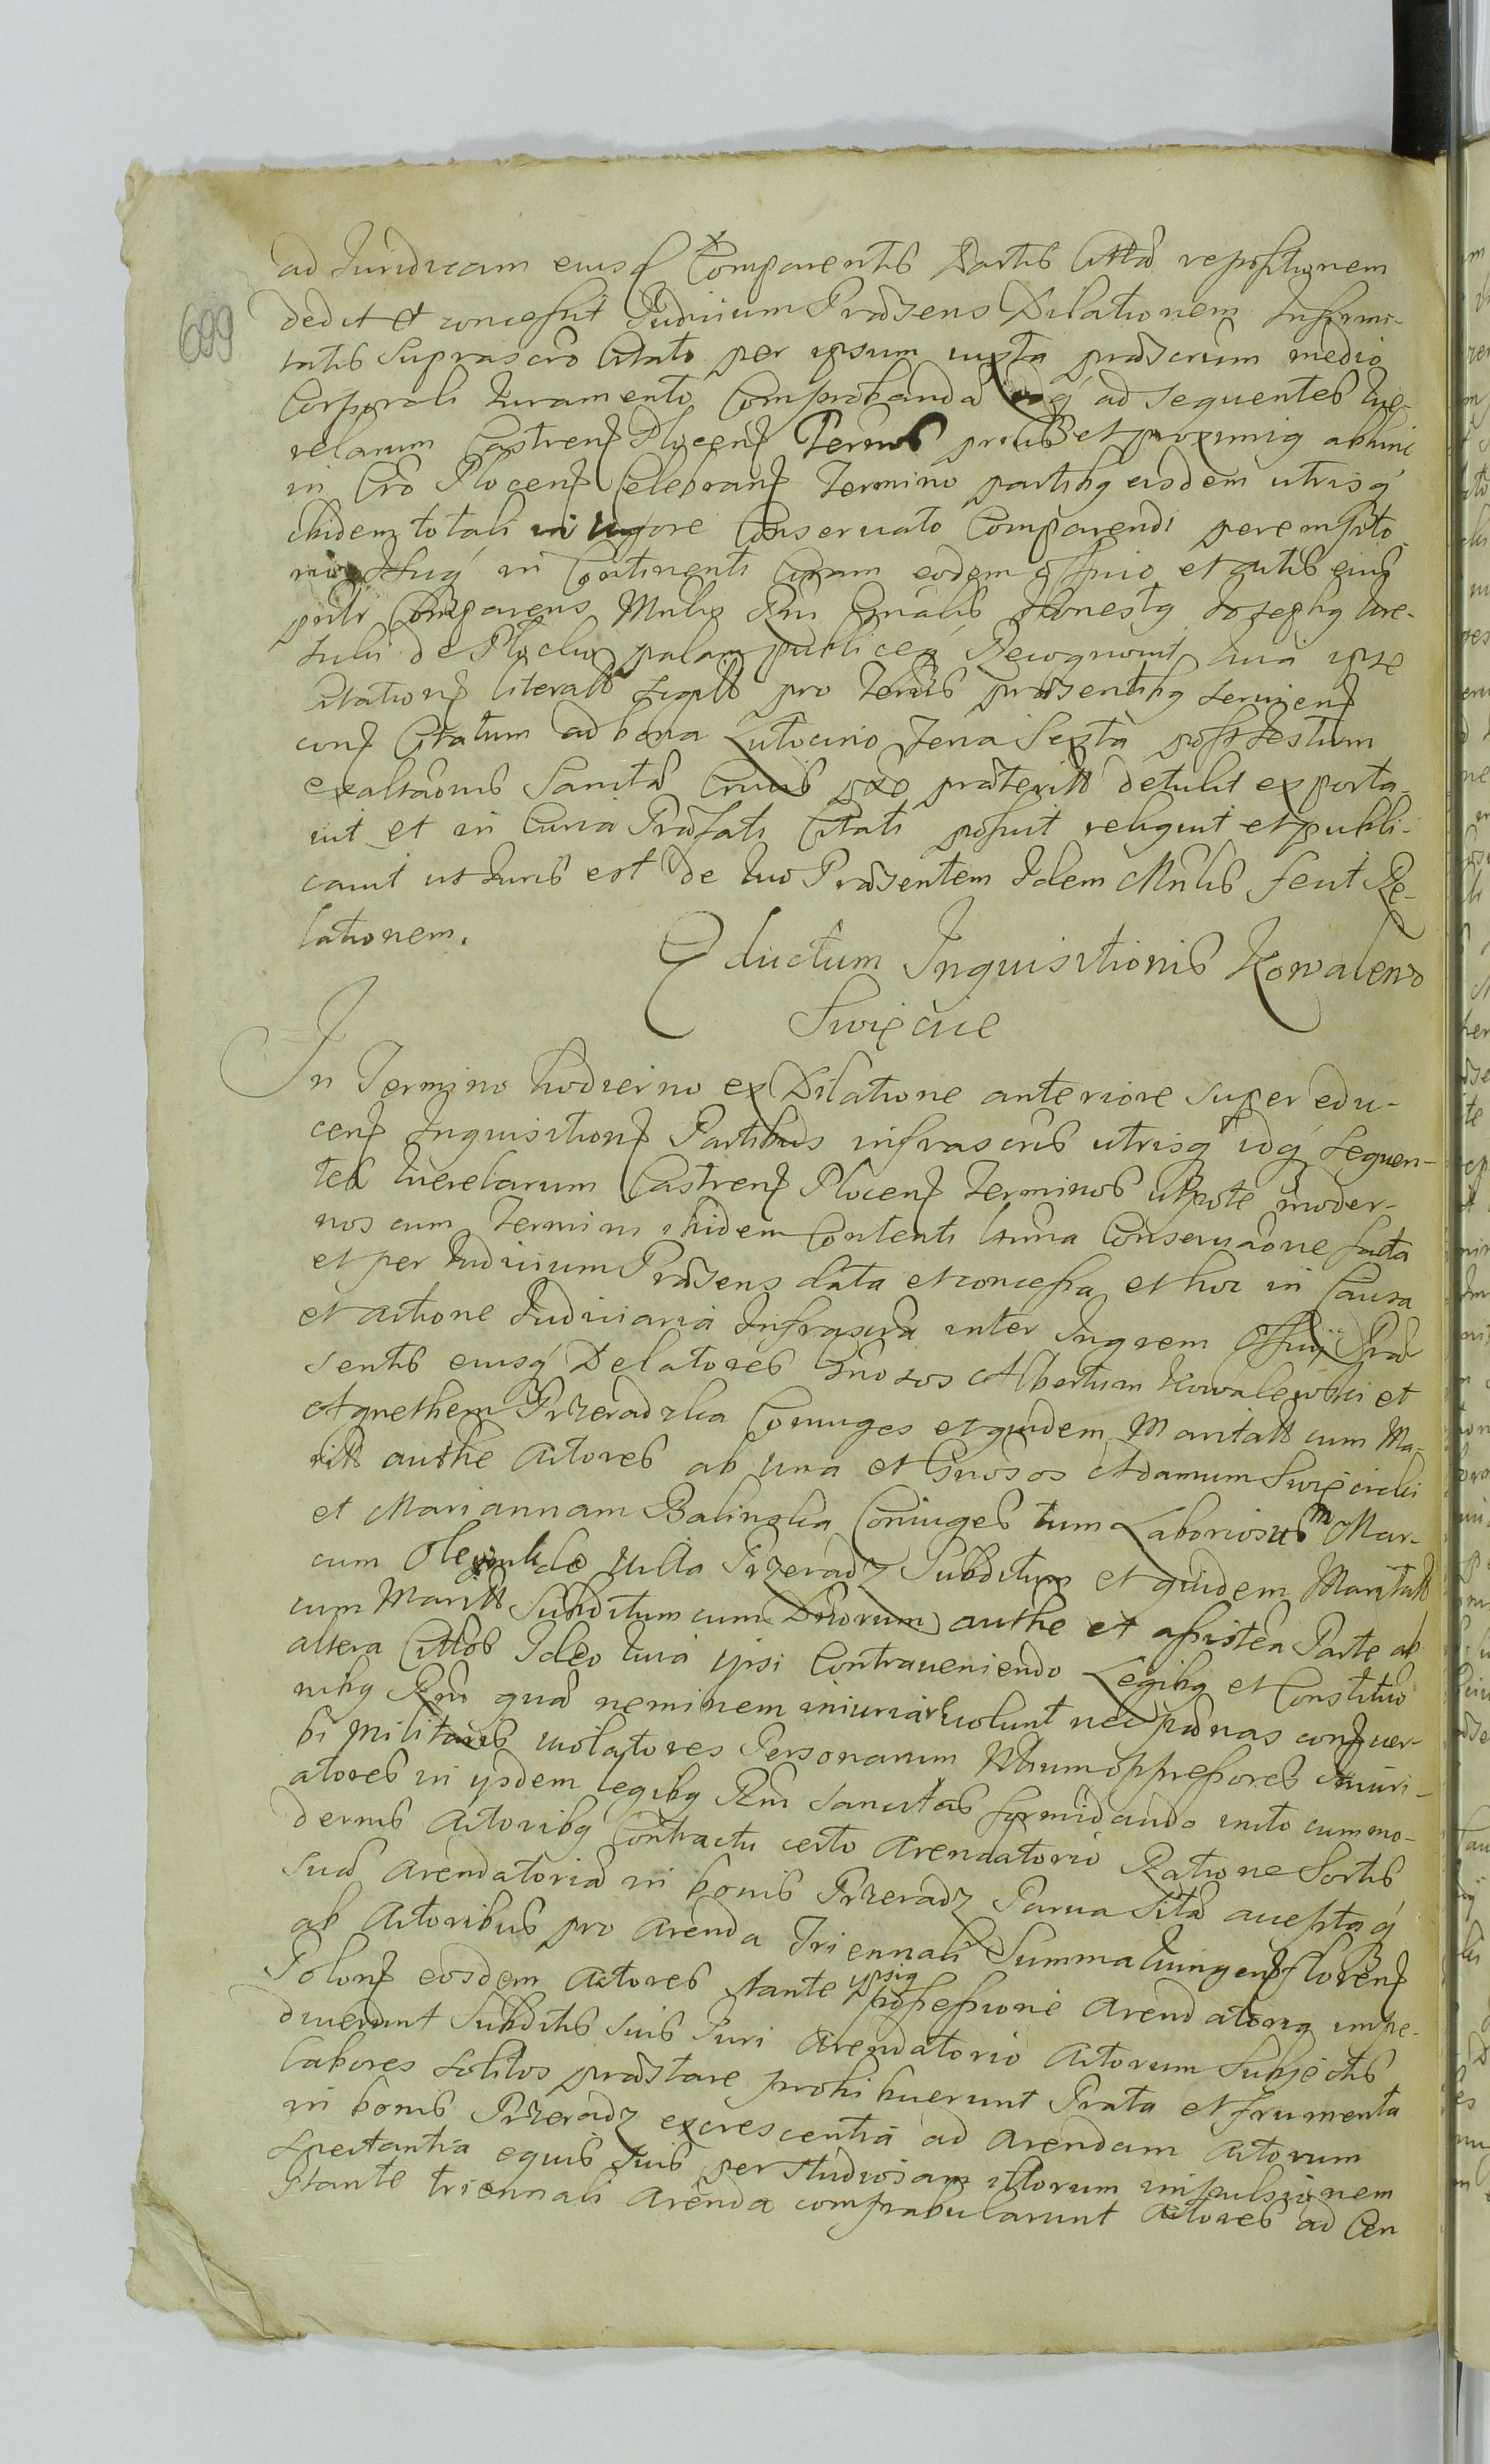 699
ad Juridicam eiusq Comparentis Partis Cittae repositionem
dedit et concessit Judicium Praesens Dilationem Infirmi-
tatis Suprascro Citato per ipsum iuxta praescrum medio
Corporali Juramento Comprobandae idq ad sequentes Que-
relarum Castren Plocen Termos proüs et proximiq abhinc
in Cro Plocen Celebran Termino partibq eisdem utrisq
ibidem totali in vigore Conservato Comparendi perempto
rio Hucq in Continenti Coram eodem officio et actis eius
pntr Comparens Mnlis Rni Gnalis Honestq Josephq
de Plocko palam publiceq Recognovit Quia ipse
Citation literall sigill pro Termis praesentibq servien
con Citatum ad bona Lutocino feria Sexta post Festum
exaltaönis Sanctae Crucis pxe praeteritt detulit exporta-
vit et in Curia Praefati Citati posuit reliquit et publi-
cavit ut Juris est de quo Praesentem Idem Mnlis fecit Re-
lationem.
Eductum Inquisitionis Kowalews
Swięcice
In Termino hodierno ex Dilatione anteriore super edu-
cen Inquisition Partibus infrascris utrisq idq sequen-
tes Querelarum Castren Plocen Terminos utpote moder-
nos cum Termini ibidem Contenti Conservaöne facta
et per Judicium Praesens data et concessa et hoc in Causa
et actione Judiciaria Infrascra inter Inqrem Officij Prae
sentis eiusq Delatores Gnosos Albertum Kowalewski et
Agnethem Przeradzka Coniuges et quidem Maritatt cum Ma-
ritt authe Actores ab una et Gnosos Adamum Swięcicki
et Mariannam Balinska Coniuges tum Laboriosum Mar-
cum de villa Przeradz Subditum et quidem Maritatt
cum Maritt Subditum cum Dnorum authe et assistea Parte ab
altera Cittos Ideo Quia ipsi Contraveniendo Legibq et Constitutio
nibq Rni quae neminem iniuriari volunt nec paenas con ver-
bi militaris violatores Personarum oppressores Iniuri-
atores in ijsdem legibq Rni sancitas formidando inito cum mo-
dernis Actoribq Contractu certo Arendatorio Ratione Sortis
suae Arendatoriae in bonis Przeradz Parva Sitae acceptaq
ab Actoribus pro arenda Triennali Summa Quingen floren
Polon eosdem Actores stante ipsiq possessione Arendatoriq impe-
diverunt Subditis suis Juri Arendatorio Actorum Subjectis
labores solitos praestare prohibuerunt Prata et frumenta
in bonis Przeradz excrescentia ad Arendam Actorum
spectantia equis suis per studiosam illorum impulsionem
stante triennali arenda compabularunt Actores ad Cen